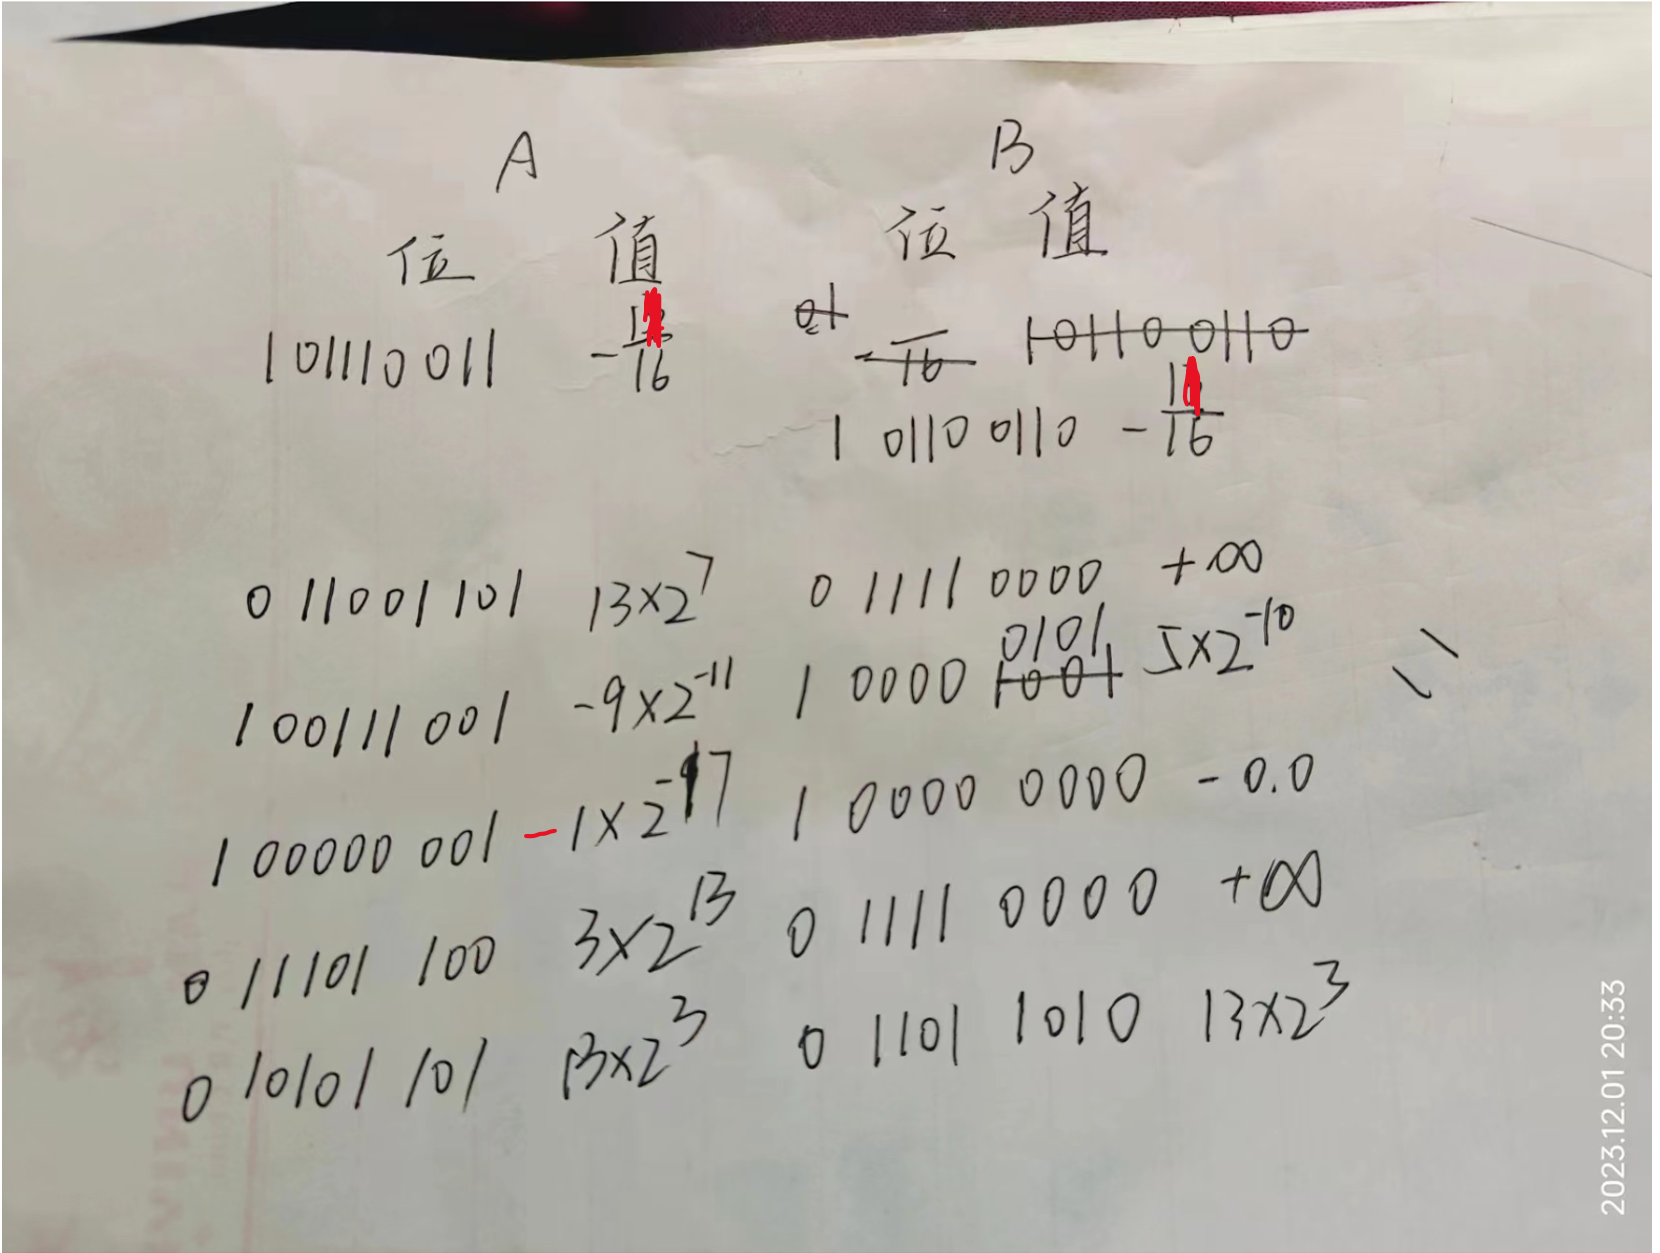 A B
位 值 位 值
1 01110 011 -1/16 1 0110 0110 -1/16
0 11001 101 13×2^7 0 1111 0000 +∞
1 00111 001 -9×2^-11 1 0000 0101 5×2^-10
1 00000 001 -1×2^-17 1 0000 0000 -0.0
0 11101 100 3×2^13 0 1111 0000 +∞
0 10101 101 13×2^3 0 1101 1010 13×2^3
2023.12.01 20:33